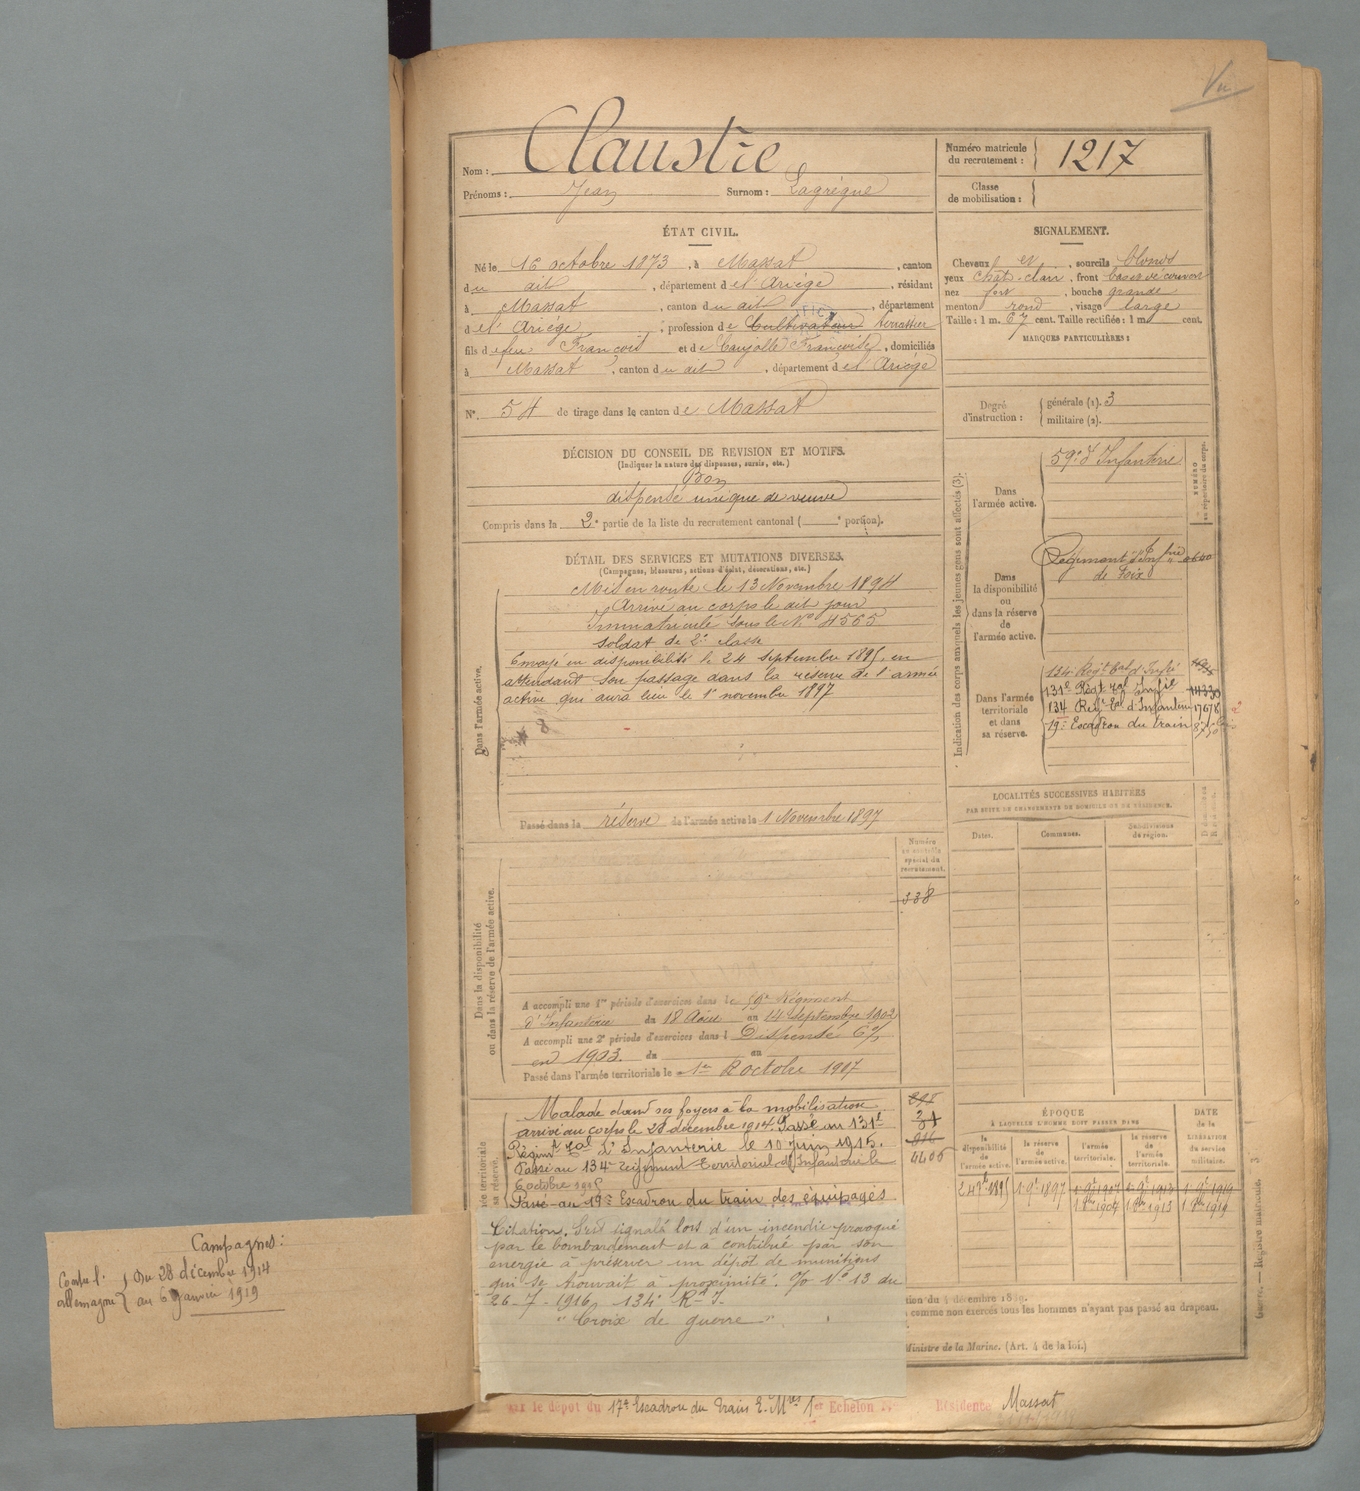 Vu
Nom : Claustre
Prénoms : Jean Surnom : Lagrègue
Numéro matricule du recrutement : 1217
Classe de mobilisation :
ÉTAT CIVIL.
Né le 16 octobre 1873, à Massat, canton
du dit, département de l'Ariège, résidant
à Massat, canton du dit, département
de l'Ariège, profession de Cultivateur terrassier
fils de feu François et de Caujolle Françoise, domiciliés
à Massat, canton du dit, département de l'Ariège
N° 54 de tirage dans le canton de Massat
SIGNALEMENT.
Cheveux et, sourcils blonds
yeux chat-clair, front
nez fort, bouche grande
menton rond, visage large
Taille : 1 m. 67 cent. Taille rectifiée : 1 m. cent.
MARQUES PARTICULIÈRES :
Degré d'instruction : générale (1). 3
militaire (2).
DÉCISION DU CONSEIL DE REVISION ET MOTIFS.
(Indiquer la nature des dispenses, sursis, etc.)
Bon
dispensé unique de veuve
Compris dans la 2e partie de la liste du recrutement cantonal ( e portion).
DÉTAIL DES SERVICES ET MUTATIONS DIVERSES.
(Campagnes, blessures, actions d'éclat, décorations, etc.)
Dans l'armée active.
Mis en route le 13 Novembre 1894
Arrivé au corps le dit jour
Immatriculé sous le N° 4565
soldat de 2e classe
Envoyé en disponibilité le 24 septembre 1895, en
attendant son passage dans la réserve de l'armée
active qui aura lieu le 1er novembre 1897
Passé dans la réserve de l'armée active le 1 Novembre 1897
Indication des corps auxquels les jeunes gens sont affectés (3).
NUMÉRO au répertoire du corps.
Dans l'armée active.
59e d'Infanterie
Dans la disponibilité ou dans la réserve de l'armée active.
Régiment d'Infrie
de Foix
Dans l'armée territoriale et dans sa réserve.
134 Regt tal d'Infie
131e Régt tal Infie 14330
134 Regt tal d'Infanterie 17678
19e Escadron du train
LOCALITÉS SUCCESSIVES HABITÉES
PAR SUITE DE CHANGEMENTS DE DOMICILE OU DE RÉSIDENCE.
Dates. Communes. Subdivisions de région.
Dans la disponibilité ou dans la réserve de l'armée active.
Numéro au contrôle spécial du recrutement.
338
A accompli une 1re période d'exercices dans le 59e Régiment
d'Infanterie du 18 Août au 14 Septembre 1902
A accompli une 2e période d'exercices dans l Dispensé
en 1903. du au
Passé dans l'armée territoriale le 1er octobre 1907
Malade dans ses foyers à la mobilisation
arrivé au corps le 28 décembre 1914. Passé au 131e
Régimt tal d'Infanterie le 10 juin 1915.
Passé au 134e régiment territorial d'Infanterie le
6 octobre 1915
Passé au 19e Escadron du train des équipages
4406
ÉPOQUE
À LAQUELLE L'HOMME DOIT PASSER DANS
DATE DE LA LIBÉRATION du service militaire.
la disponibilité de l'armée active. la réserve de l'armée active. l'armée territoriale. la réserve de l'armée territoriale.
24 7bre 1895 1 9e 1897 1 9e 1907 1 9e 1913 1 9e 1919
1 8bre 1907 1 8bre 1913 1 8bre 1919
Citation. S'est signalé lors d'un incendie provoqué
par le bombardement et a contribué par son
énergie à préserver un dépôt de munitions
qui se trouvait à proximité. O/ N° 13 du
26-7-1916 134e R.t I.
"Croix de guerre".
Campagnes :
Contre l'Allemagne
du 28 décembre 1914
au 6 Janvier 1919
comme non exercés tous les hommes n'ayant pas passé au drapeau.
Ministre de la Marine. (Art. 4 de la loi.)
Registre matricule. 3
le dépôt du 17e Escadron du Train 1er Echelon Résidence Massat